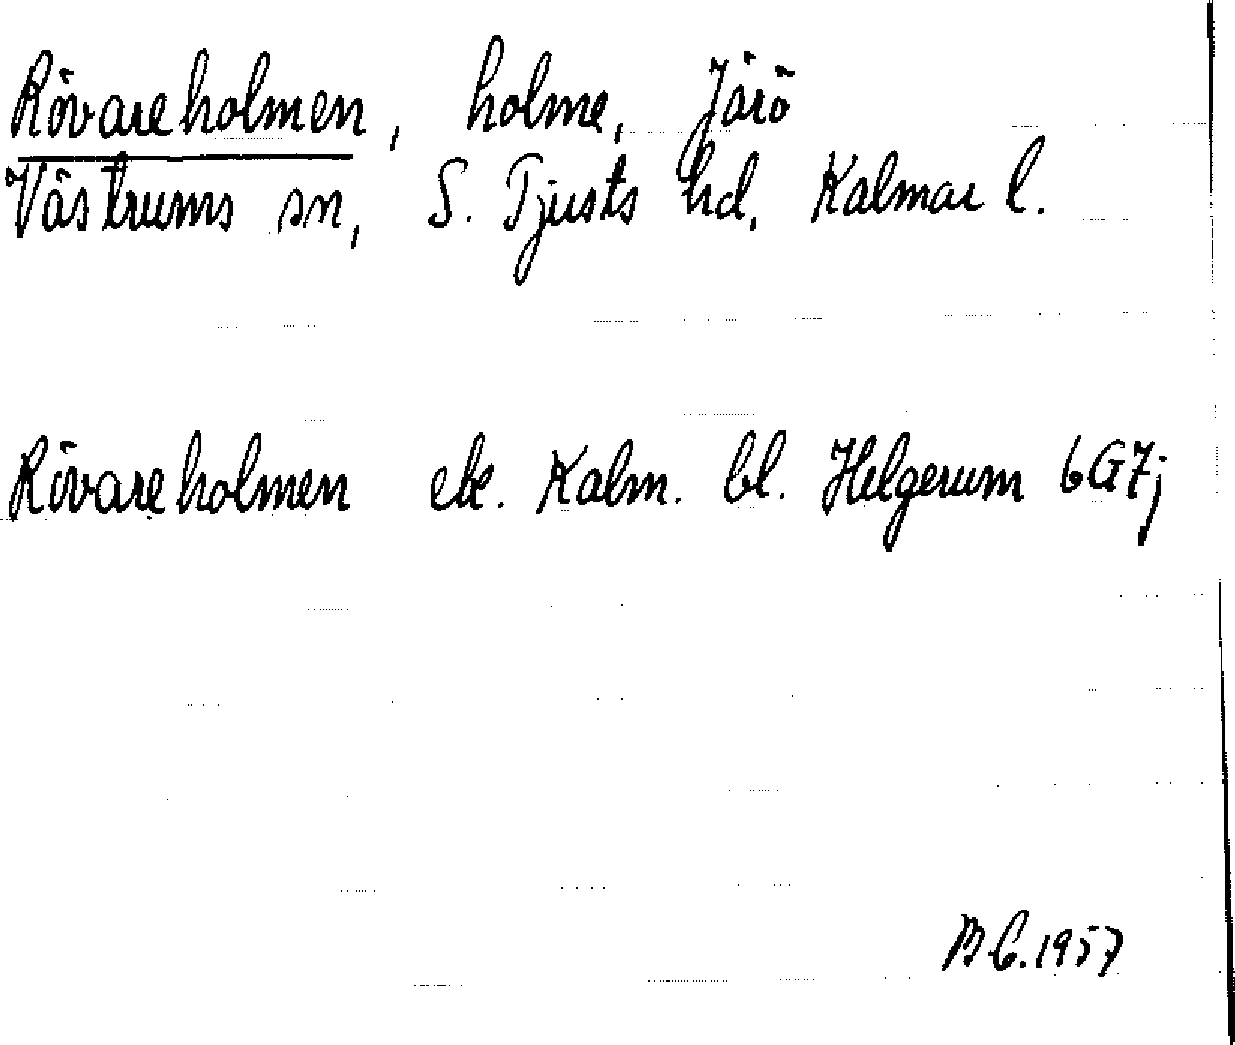 Rövareholmen, holme, Järö
Västrums sn, S. Tjusts hd, Kalmar l.
Rövareholmen ek. Kalm. bl. Helgerum 6G7j
1957